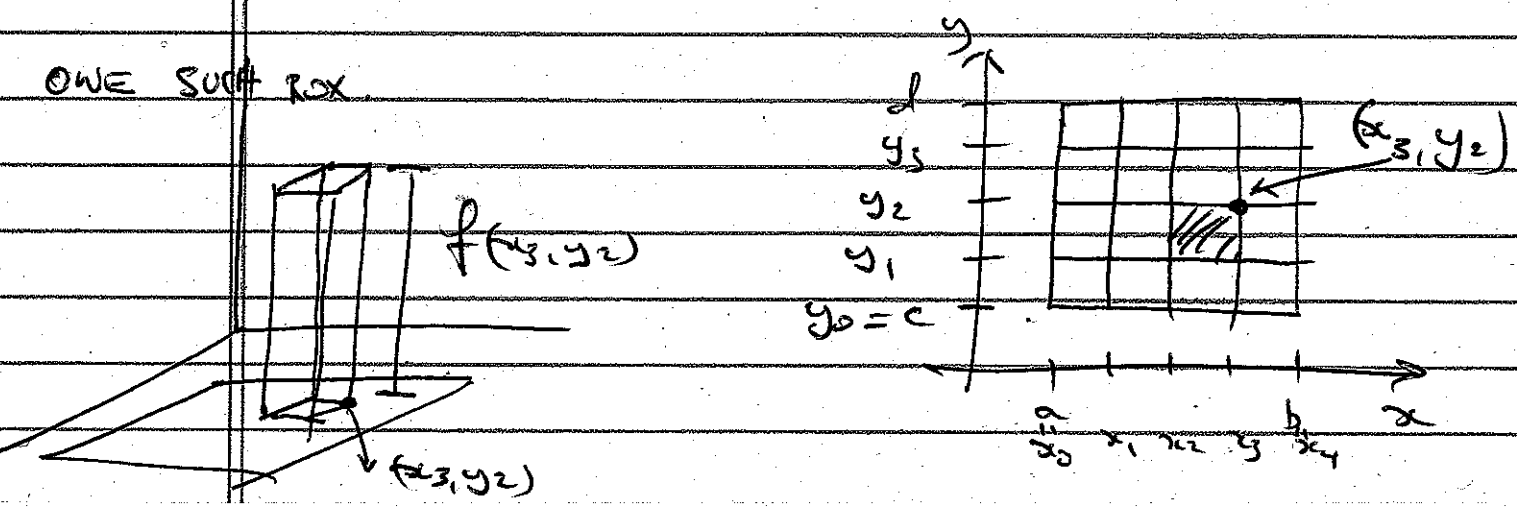 ONE SUCH BOX.
f(x3, y2)
(x3, y2)
y
d
y3
y2
y1
y0 = c
(x3, y2)
a
=
x0
x1
x2
x3
b
=
x4
x